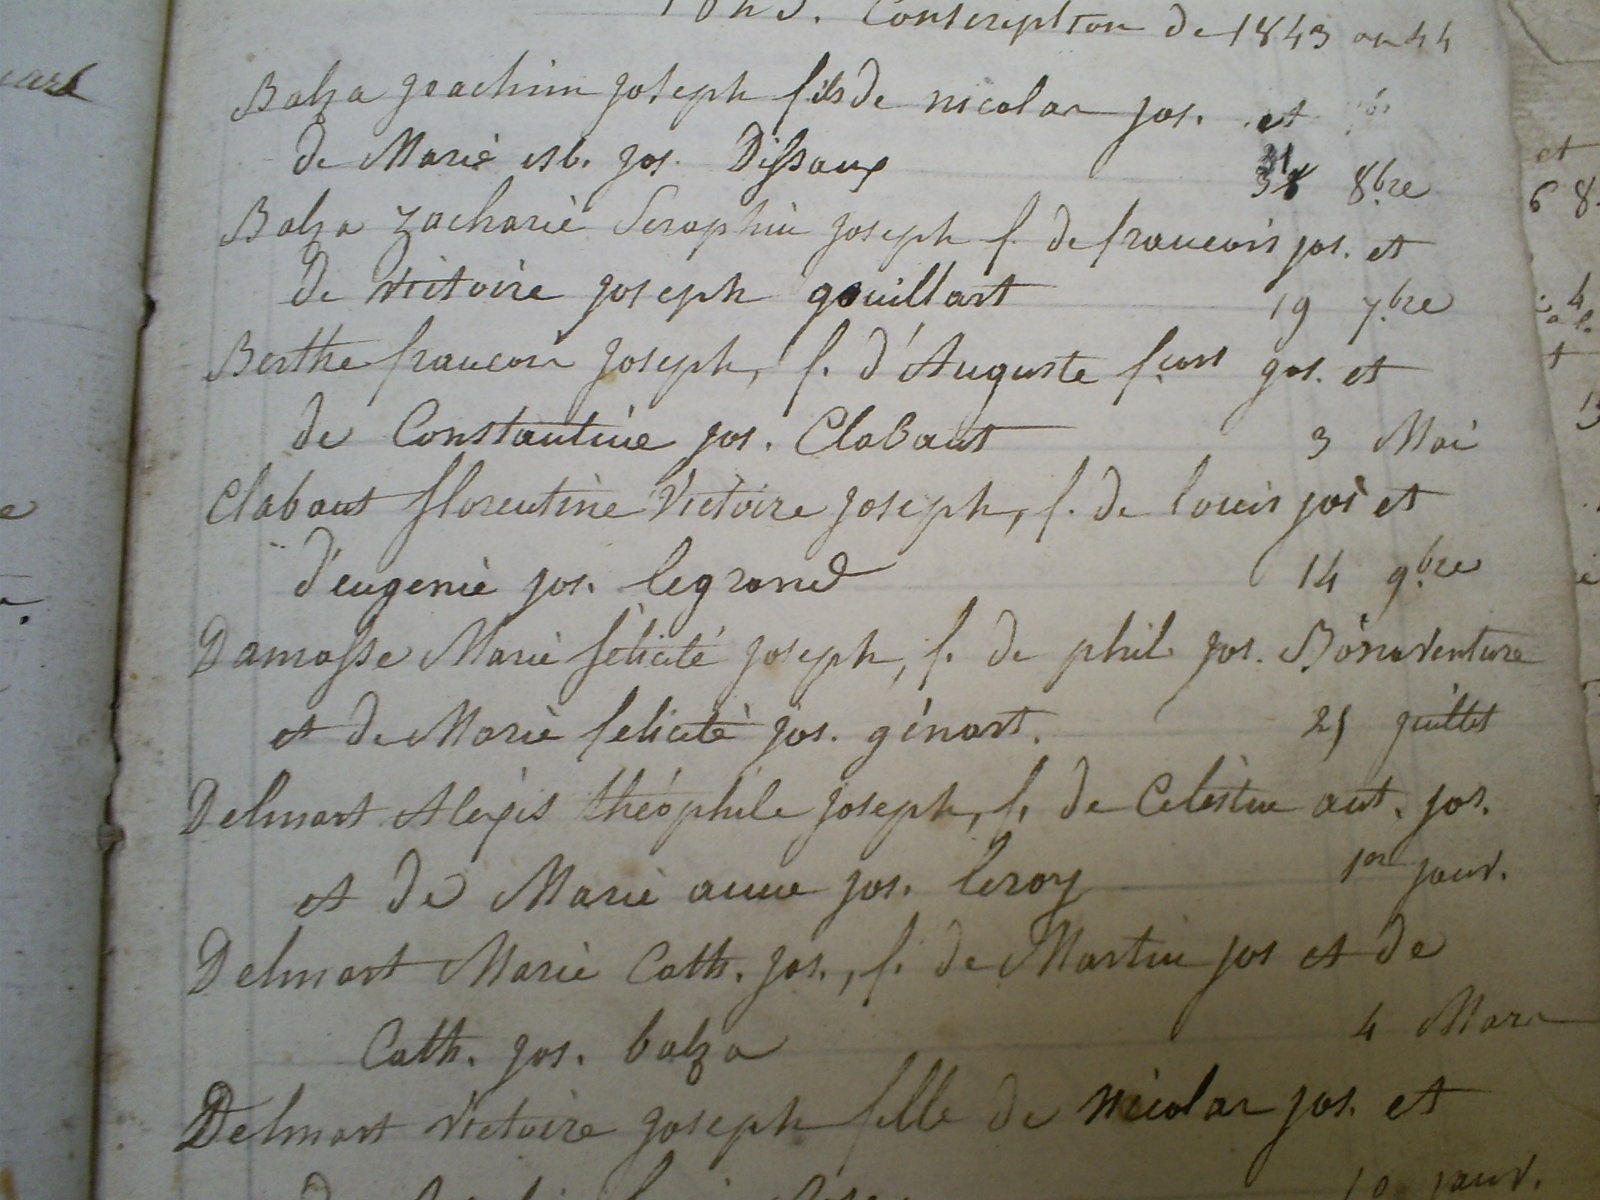 Conscription de 1843 ou 44
Balza joachim joseph fils de nicolas jos. et
de Marie isb. jos. Dissaux 31 8bre
Balza Zacharie Seraphin joseph f. de francois jos. et
de victoire joseph gouillart 19 7bre
Berthe francois joseph, f. d'Auguste fçois jos. et
de Constantine jos. Clabaut 3 Mai
Clabaut florentine Victoire joseph, f. de louis jos et
d'eugenie jos. legrand 14 9bre
Damasse Marie félicité joseph, f. de phil. jos. Bonaventure
et de Marie félicité jos. génart. 25 juillet
Delmart Alexis théophile joseph, f. de Celestin ant. jos.
et de Marie anne jos. leroy 1er janv.
Delmart Marie Cath. jos., f. de Martin jos et de
Cath. jos. balza 4 Mars
Delmart victoire joseph fille de nicolas jos. et
janv.